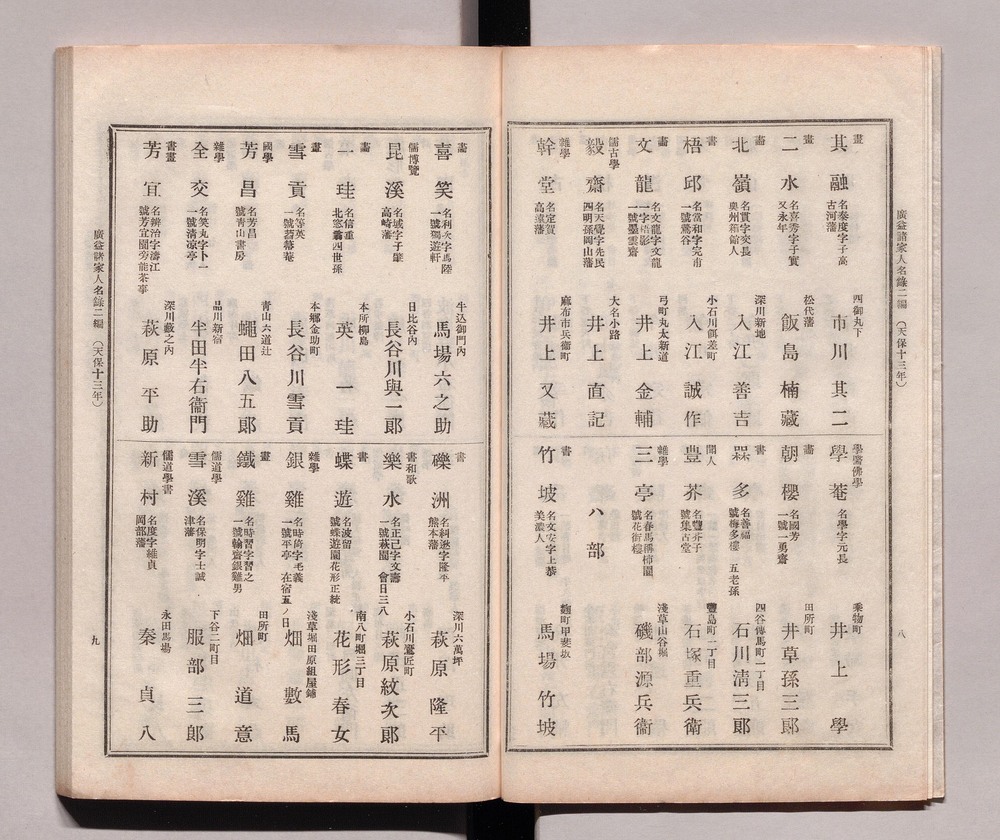 廣益諸家人名錄二編 (天保十三年)
八
畫
其融
名泰度字子高
古河藩
西御丸下
市川其二
畫
二水
名喜秀字子實
又永年
松代藩
飯島楠藏
畫
北嶺
名貫字交長
奧州箱館人
深川新地
入江善吉
書
梧邱
名當和字完甫
一號鶯谷
小石川餌差町
入江誠作
畫
文龍
名文龍字文龍
一字梧影
一號墨雲齋
弓町丸太新道
井上金輔
儒古學
毅齋
名天覺字先民
四明孫岡山藩
大名小路
井上直記
雜學
幹堂
名定賀
高遠藩
麻布市兵衞町
井上又藏
學醫佛學
學菴
名學字元長
乘物町
井上學
畫
朝櫻
名國芳
號一勇齋
田所町
井草孫三郞
書
槑多
名善福
號梅多樓 五老孫
四谷傳馬町一丁目
石川淸三郞
聞人
豊芥
名豐芥子
號集古堂
豐島町一丁目
石塚重兵衞
雜學
三亭
名春馬稱柿園
號花街樓
淺草山谷堀
磯部源兵衞
ハ部
書
竹坡
名文安字上恭
美濃人
麹町甲斐坂
馬場竹坡
畫
喜笑
名利久字馬陸
一號獨遊軒
牛込御門內
馬場六之助
儒博覽
昆溪
名域字子肇
高崎藩
日比谷內
長谷川與一郞
畫
一珪
名信重
北窓翁四世孫
本所柳島
英一珪
畫
雪貢
名等英
一號碧蘿菴
本鄕金助町
長谷川雪貢
國學
芳昌
名芳昌
號靑山書房
靑山六道辻
蠅田八五郞
雜學
全交
名笑丸字卜一
一號淸凉亭
品川新宿
半田半右衞門
書畫
芳宜
名辨治字濤江
號芳宜園旁能茶事
深川藪之內
萩原平助
礫洲
名糾遜字隆平
熊本藩
深川六萬坪
萩原隆平
書和歌
樂水
名正己字文壽
一號萩園 會日三八
小石川鷹匠町
萩原紋次郞
書
蝶遊
名波留
號蝶遊園花形正統
南八町堀三丁目
花形春女
雜學
銀雞
名時倚字毛義
一號平亭 在宿五ノ日
淺草堀田原組屋鋪
畑數馬
畫
鐵雞
名時習字習之
一號翰齋銀雞男
田所町
畑道意
儒道學
雪溪
名保明字士誠
津藩
下谷二町目
服部三郞
儒道學書
新村
名度字維貞
岡部藩
永田馬場
秦貞八
廣益諸家人名錄二編 (天保十三年)
九